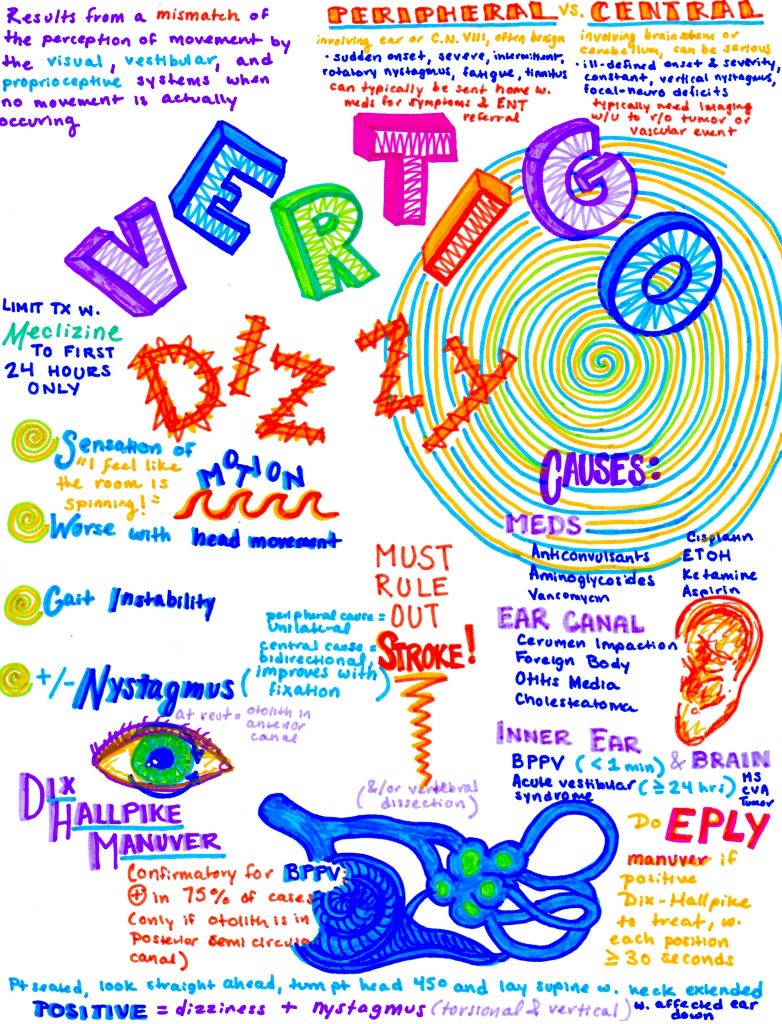 Results from a mismatch of
the perception of movement by
the visual, vestibular, and
proprioceptive systems when
no movement is actually
occuring
PERIPHERAL VS. CENTRAL
involving ear or C.N. VIII, often benign
• sudden onset, severe, intermittent,
rotatory nystagmus, fatigue, tinnitus
can typically be sent home w.
meds for symptoms & ENT
referral
involving brainstem or
cerebellum, can be serious
• ill-defined onset & severity,
constant, vertical nystagmus,
focal-neuro deficits
typically need imaging
w/u to r/o tumor or
vascular event
VERTIGO
LIMIT TX W.
Meclizine
TO FIRST
24 HOURS
ONLY
DIZZY
Sensation of
"I feel like
the room is
spinning!"
MOTION
Worse with head movement
Gait Instability
+/- Nystagmus
peripheral cause =
unilateral
central cause =
bidirectional,
improves with
fixation
at rest = otolith in
anterior
canal
MUST
RULE
OUT
STROKE!
(&/or vertebral
dissection)
CAUSES:
MEDS
Anticonvulsants
Aminoglycosides
Vancomycin
Cisplatin
ETOH
Ketamine
Aspirin
EAR CANAL
Cerumen Impaction
Foreign Body
Otitis Media
Cholesteatoma
INNER EAR & BRAIN
BPPV (< 1 min)
Acute vestibular (≥ 24 hrs)
syndrome
MS
CVA
Tumor
DIX
HALLPIKE
MANUVER
Confirmatory for BPPV
+ in 75% of cases
(only if otolith is in
Posterior semi circular
canal)
Do EPLY
manuver if
positive
Dix-Hallpike
to treat, w.
each position
≥ 30 seconds
Pt seated, look straight ahead, turn pt head 45° and lay supine w. neck extended
w. affected ear
down
POSITIVE = dizziness + nystagmus (torsional & vertical)